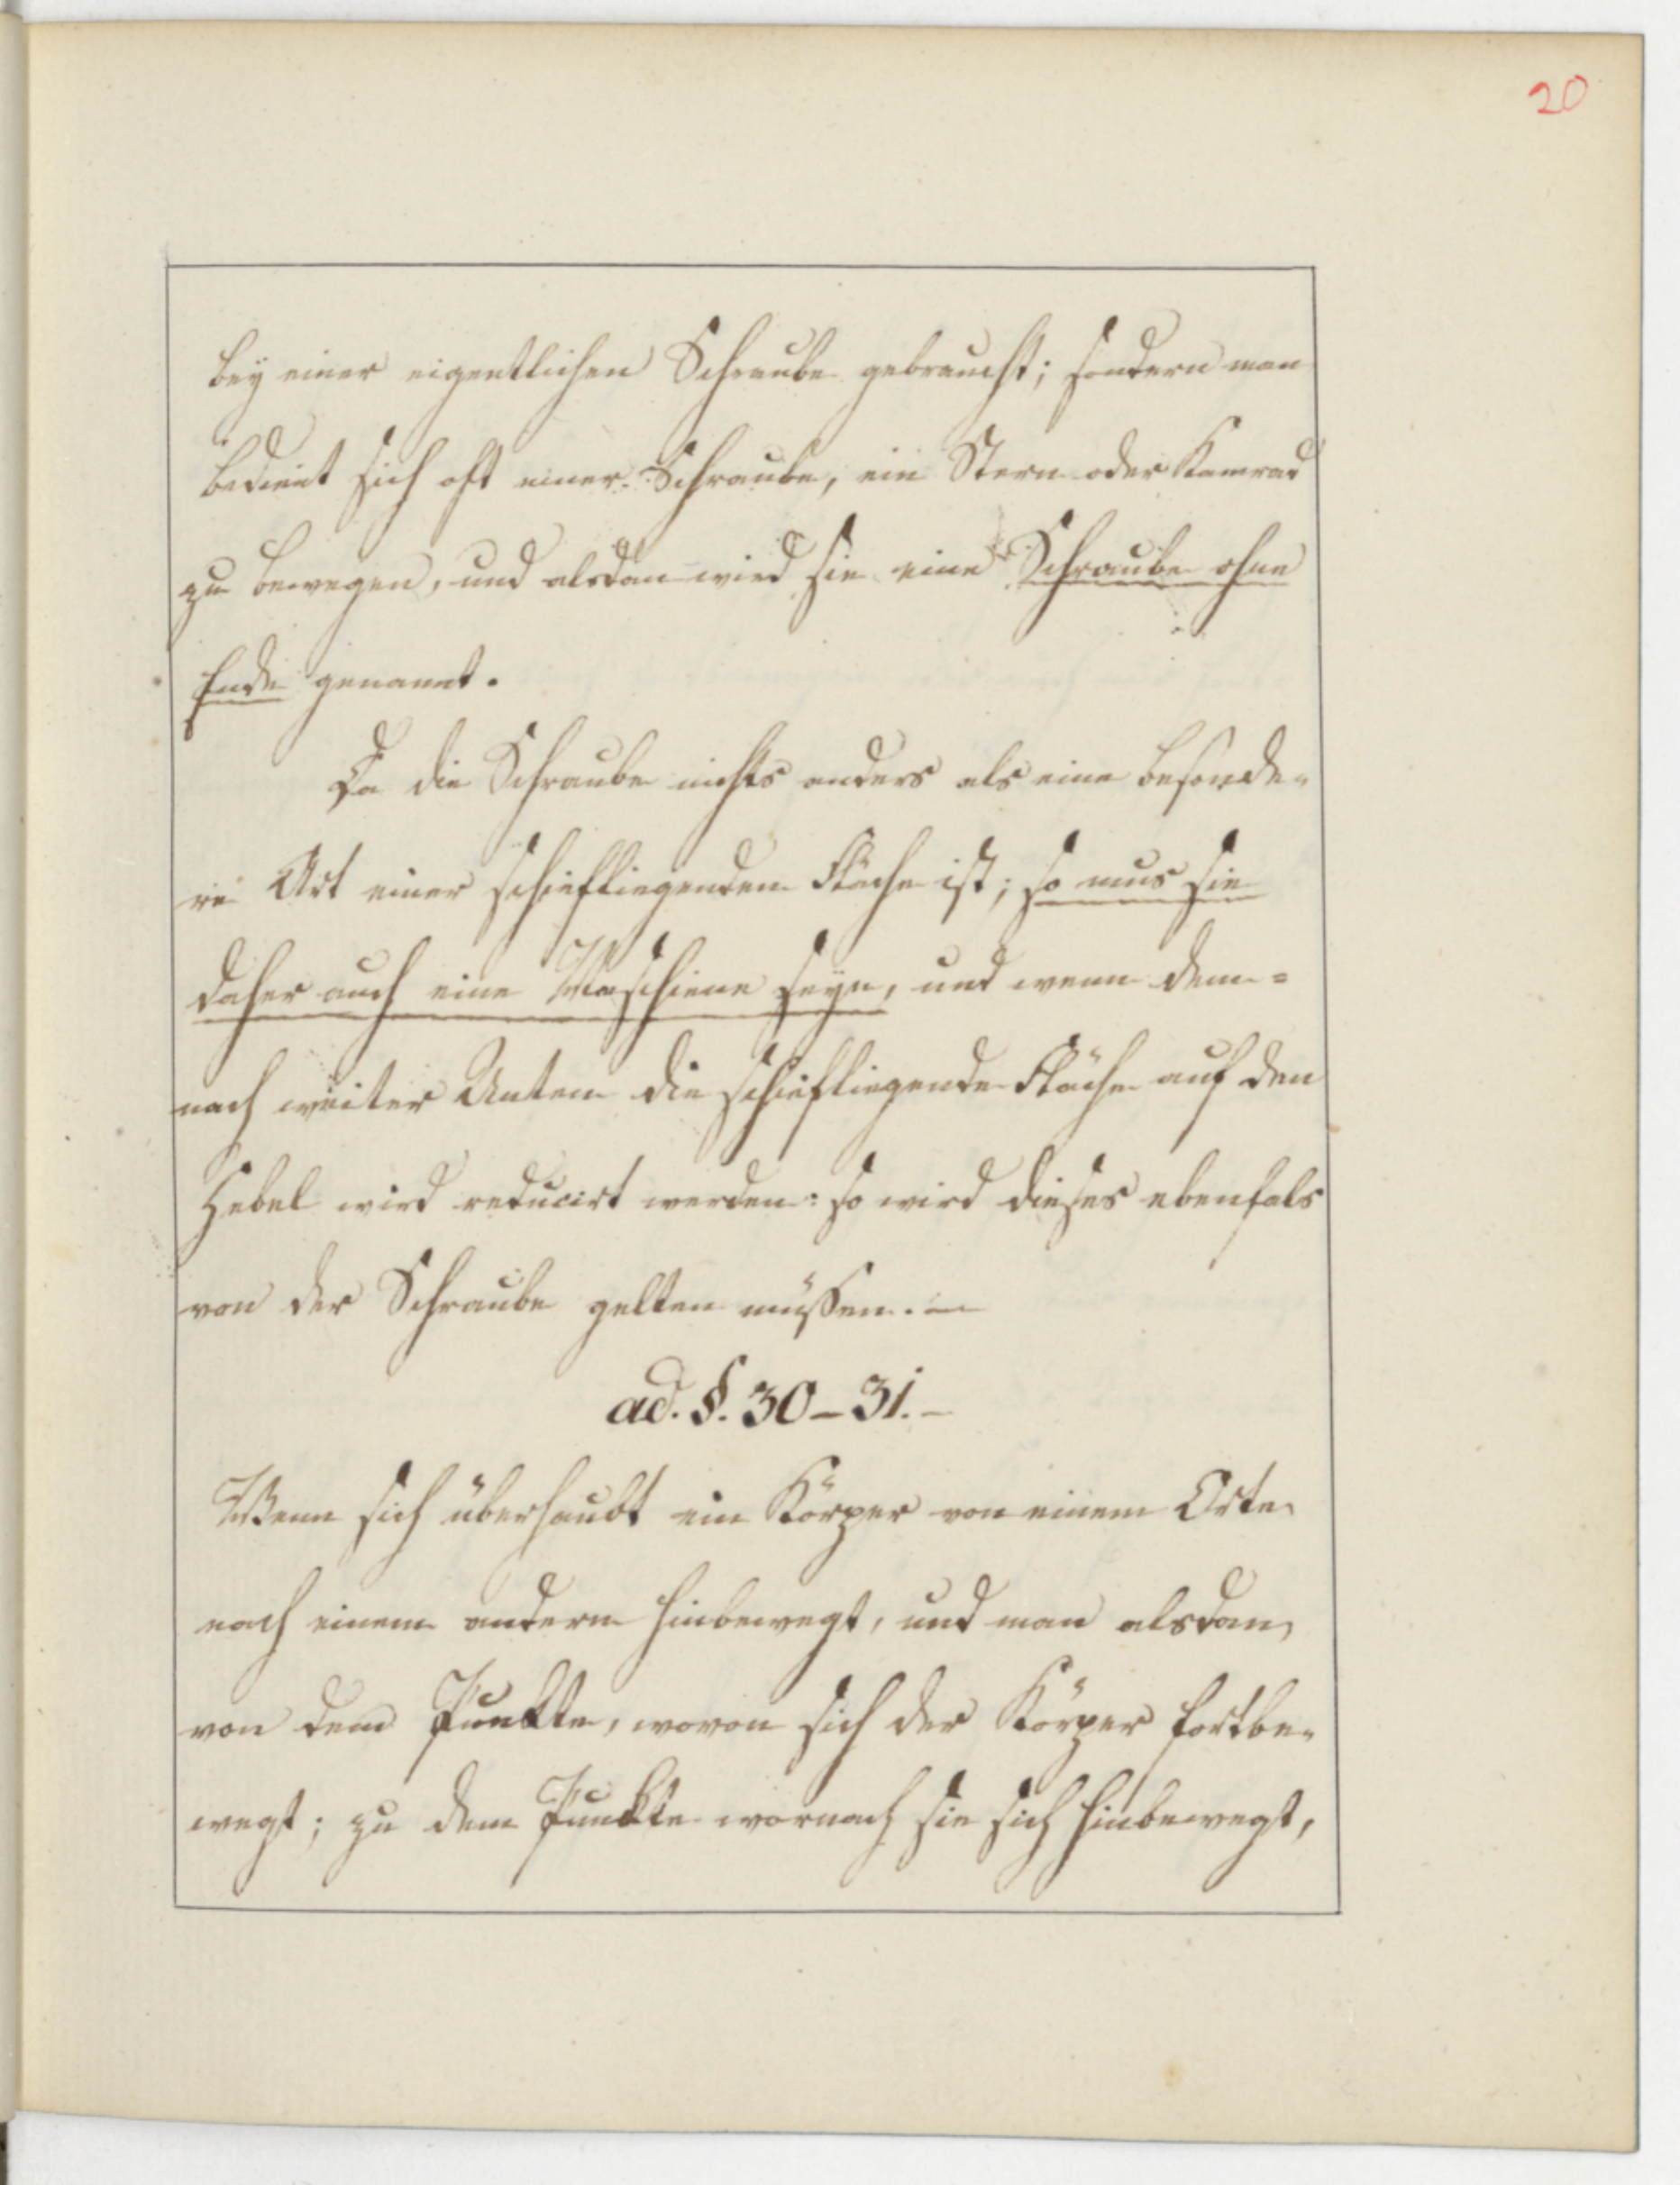 20
bey einer eigentlichen Schraube gebraucht; sondern man
bedient sich oft einer Schraube, ein Stern oder Kamrad
zu bewegen, und alsdan wird sie eine Schraube ohne
Ende genannt.
Da die Schraube nichts anders als eine besonde-
re Art einer schiefliegenden Fläche ist; so mus sie
daher auch eine Maschiene seyn, und wenn dem=
nach weiter Unten die schiefliegende Fläche auf den
Hebel wird reducirt werden: so wird dieses ebenfals
von der Schraube gelten müssen. —
ad. §. 30 – 31. –
Wenn sich überhaubt ein Körper von einem Orte
nach einem andern hinbewegt, und man alsdan
von dem Punkte, wovon sich der Körper fortbe-
wegt; zu dem Punkte wornach sie sich hinbewegt,